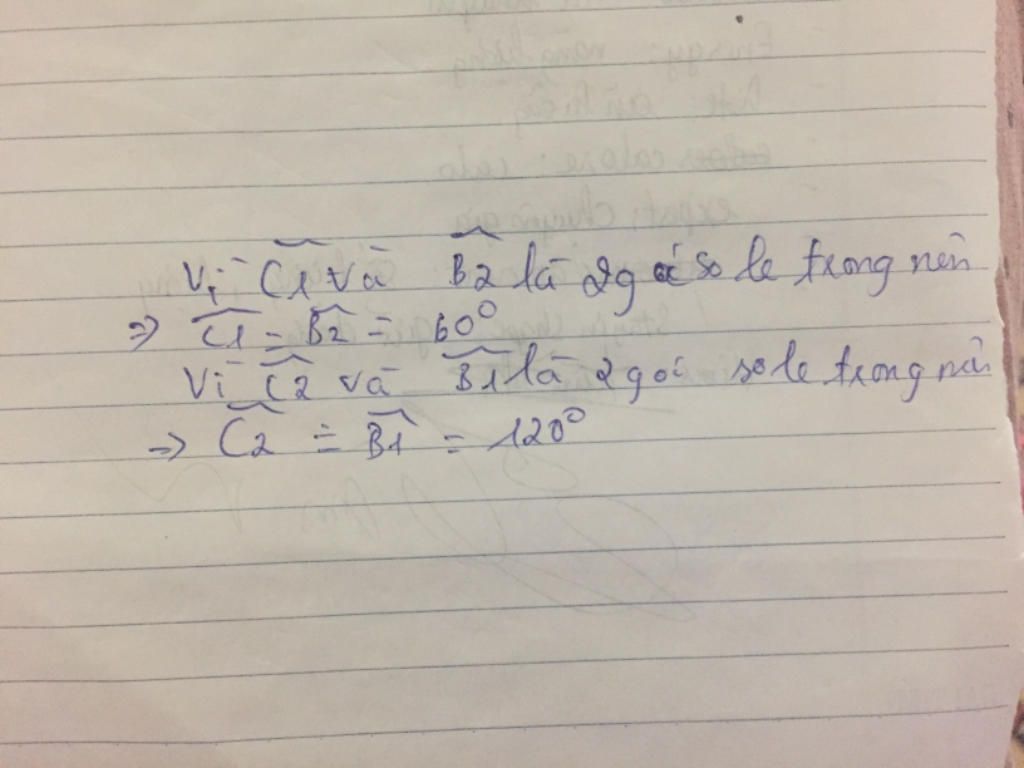 Vì Ĉ1 và B̂2 là 2 góc so le trong nên
=> Ĉ1 = B̂2 = 60°
Vì Ĉ2 và B̂1 là 2 goí so le trong nên
=> Ĉ2 = B̂1 = 120°